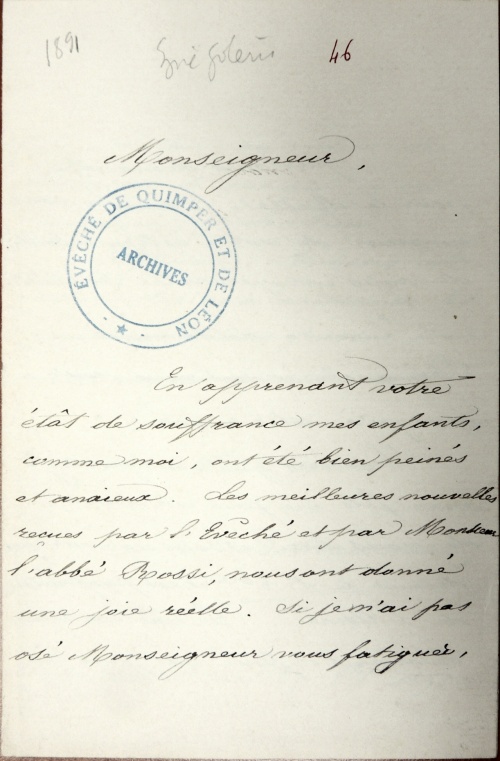 1891 46
Monseigneur,
ÉVÊCHÉ DE QUIMPER ET DE LÉON
ARCHIVES
En apprenant votre
étât de souffrance mes enfants,
comme moi, ont été bien peinés
et anxieux. Les meilleures nouvelles
recues par l'Evêché et par Monsieur
l'abbé Rossi, nous ont donné
une joie réelle. Si je n'ai pas
osé Monseigneur vous fatiguer,